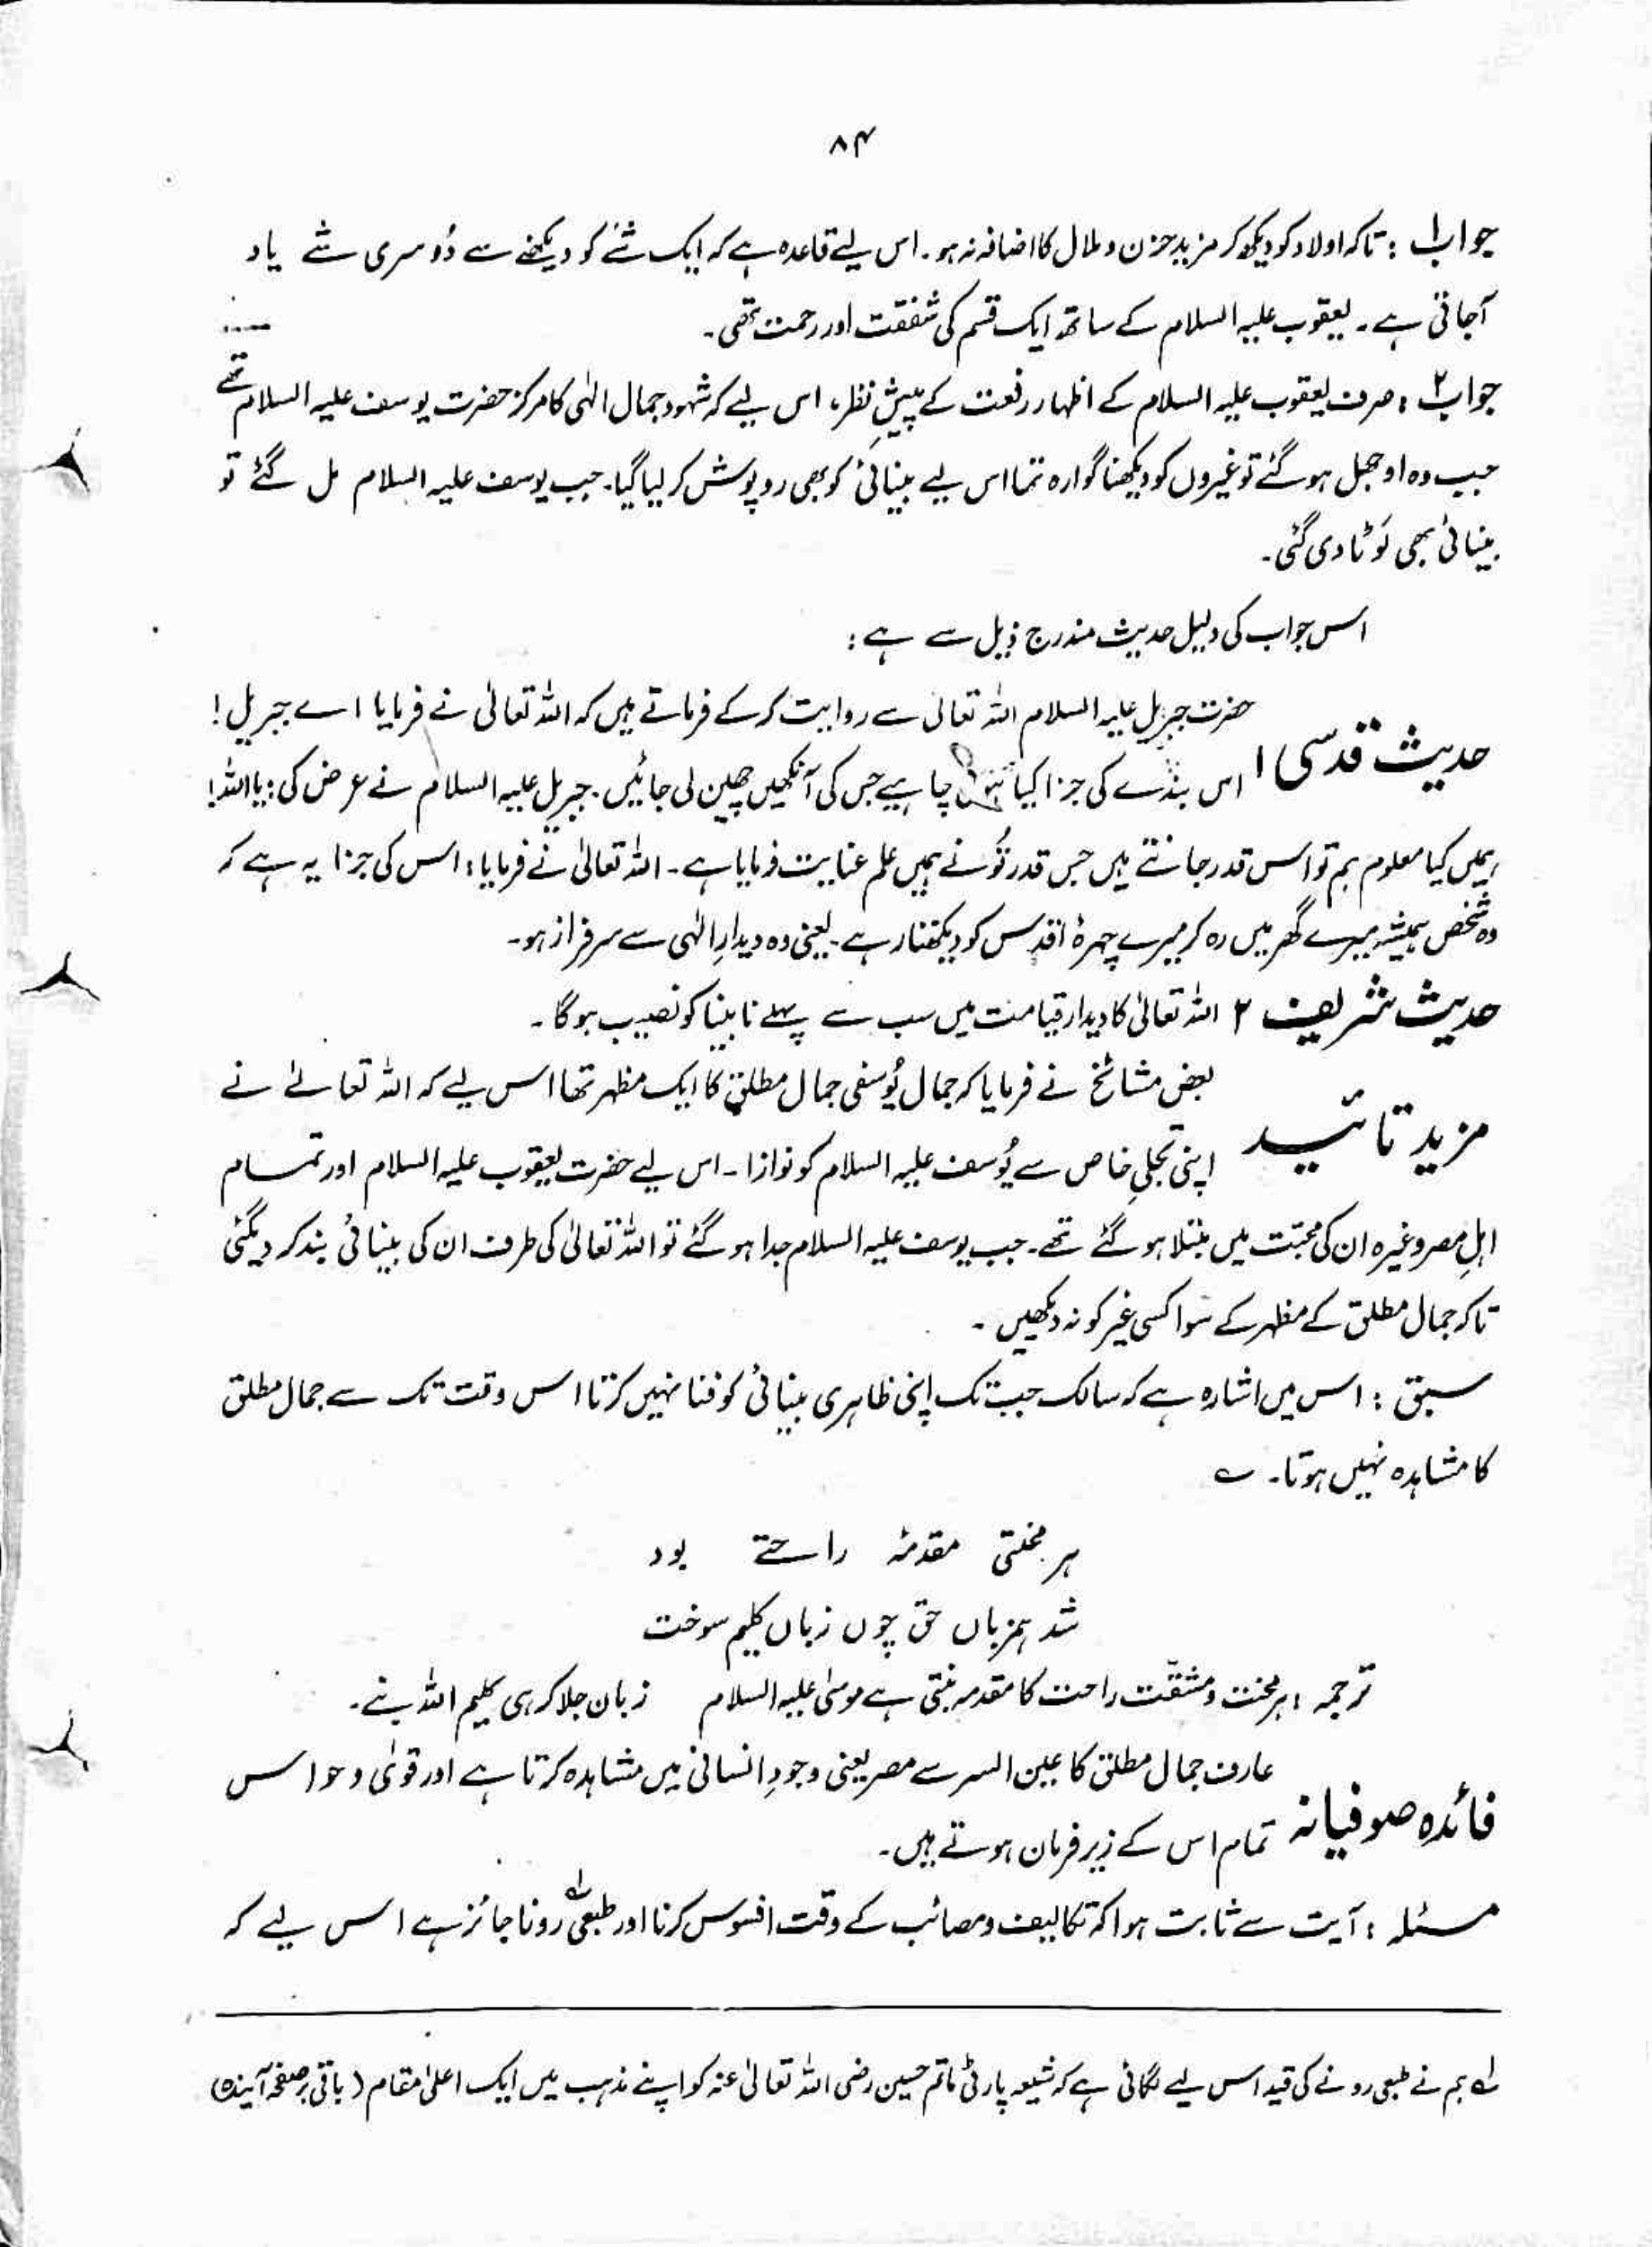 ۸۴
جواب ۱ : تاکہ اولاد کو دیکھ کر مزید حزن و ملال کا اضافہ نہ ہو۔ اس لیے قاعدہ ہے کہ ایک شئے کو دیکھنے سے دُوسری شے یاد
آجاتی ہے۔ یعقوب علیہ السلام کے ساتھ ایک قسم کی شفقت اور رحمت تھی۔
جواب ۲ : صرف یعقوب علیہ السلام کے اظہار رفعت کے پیشِ نظر، اس لیے کہ شہود جمال الٰہی کا مرکز حضرت یوسف علیہ السلام تھے
جب وہ اوجھل ہو گئے تو غیروں کو دیکھنا گوارہ نہ تھا اس لیے بینائی کو بھی روپوش کر لیا گیا۔ جب یوسف علیہ السلام مل گئے تو
بینائی بھی لَوٹا دی گئی۔
اس جواب کی دلیل حدیث مندرج ذیل سے ہے :
حضرت جبریل علیہ السلام اللہ تعالیٰ سے روایت کر کے فرماتے ہیں کہ اللہ تعالیٰ نے فرمایا اے جبریل !
حدیث قدسی ۱ اس بندے کی جزا کیا ہونی چاہیے جس کی آنکھیں چھین لی جائیں۔ جبریل علیہ السلام نے عرض کی : یا اللہ!
ہمیں کیا معلوم ہم تو اس قدر جانتے ہیں جس قدر تُو نے ہمیں علم عنایت فرمایا ہے۔ اللہ تعالیٰ نے فرمایا : اس کی جزا یہ ہے کہ
وہ شخص ہمیشہ میرے گھر میں رہ کر میرے چہرۂ اقدس کو دیکھتا رہے۔ یعنی وہ دیدارِ الٰہی سے سرفراز ہو۔
حدیث شریف ۲ اللہ تعالیٰ کا دیدار قیامت میں سب سے پہلے نابینا کو نصیب ہو گا۔
بعض مشائخ نے فرمایا کہ جمال یُوسفی جمال مطلق کا ایک مظہر تھا اس لیے کہ اللہ تعالےٰ نے
مزید تائید اپنی تجلیِ خاص سے یُوسف علیہ السلام کو نوازا۔ اس لیے حضرت یعقوب علیہ السلام اور تمام
اہلِ مصر وغیرہ ان کی محبّت میں مبتلا ہو گئے تھے۔ جب یوسف علیہ السلام جدا ہو گئے تو اللہ تعالیٰ کی طرف ان کی بینائی بند کر دیگئی
تاکہ جمال مطلق کے مظہر کے سوا کسی غیر کو نہ دیکھیں۔
سبق : اس میں اشارہ ہے کہ سالک جب تک اپنی ظاہری بینائی کو فنا نہیں کرتا اس وقت تک سے جمال مطلق
کا مشاہدہ نہیں ہوتا۔ ؎
ہر محنتی مقدمۂ راحتے بود
شد ہمزباں حق چوں زباں کلیم سوخت
ترجمہ : ہر محنت و مشقّت راحت کا مقدمہ بنتی ہے موسیٰ علیہ السلام زبان جلا کر ہی کلیم اللہ بنے۔
عارف جمال مطلق کا عین السر سے مصر یعنی وجودِ انسانی میں مشاہدہ کرتا ہے اور قویٰ و حواس
فائدہ صوفیانہ تمام اس کے زیر فرمان ہوتے ہیں۔
مسئلہ : آیت سے ثابت ہوا کہ تکالیف و مصائب کے وقت افسوس کرنا اور طبعی ؂۱ رونا جائز ہے اس لیے کہ
؂۱ ہم نے طبعی رونے کی قید اس لیے لگائی ہے کہ شیعہ پارٹی ماتم حسین رضی اللہ تعالیٰ عنہ کو اپنے مذہب میں ایک اعلیٰ مقام (باقی برصفحہ آیندہ)